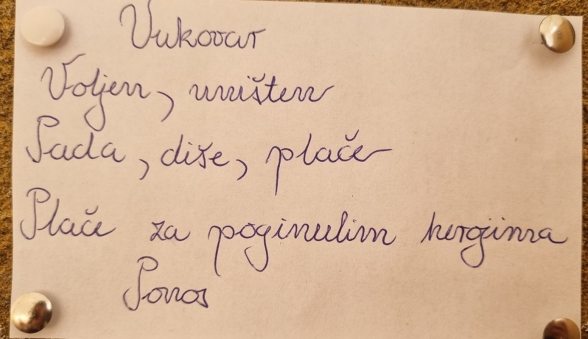 Vukovar
Voljen, uništen
Pada, diše, plače
Plače za poginulim herojima
Ponos